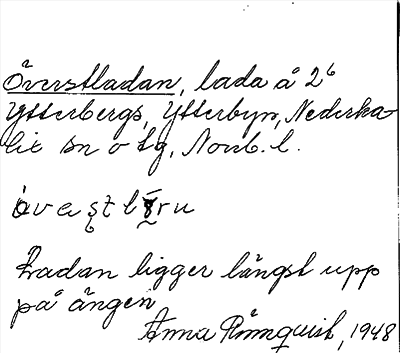 Överstladan, lada å 2⁶
Ytterbergs, Ytterbyn, Nederka-
lix sn o tg, Norrb. l.
Ladan ligger längst upp
på ängen
Anna Rönnquist, 1948